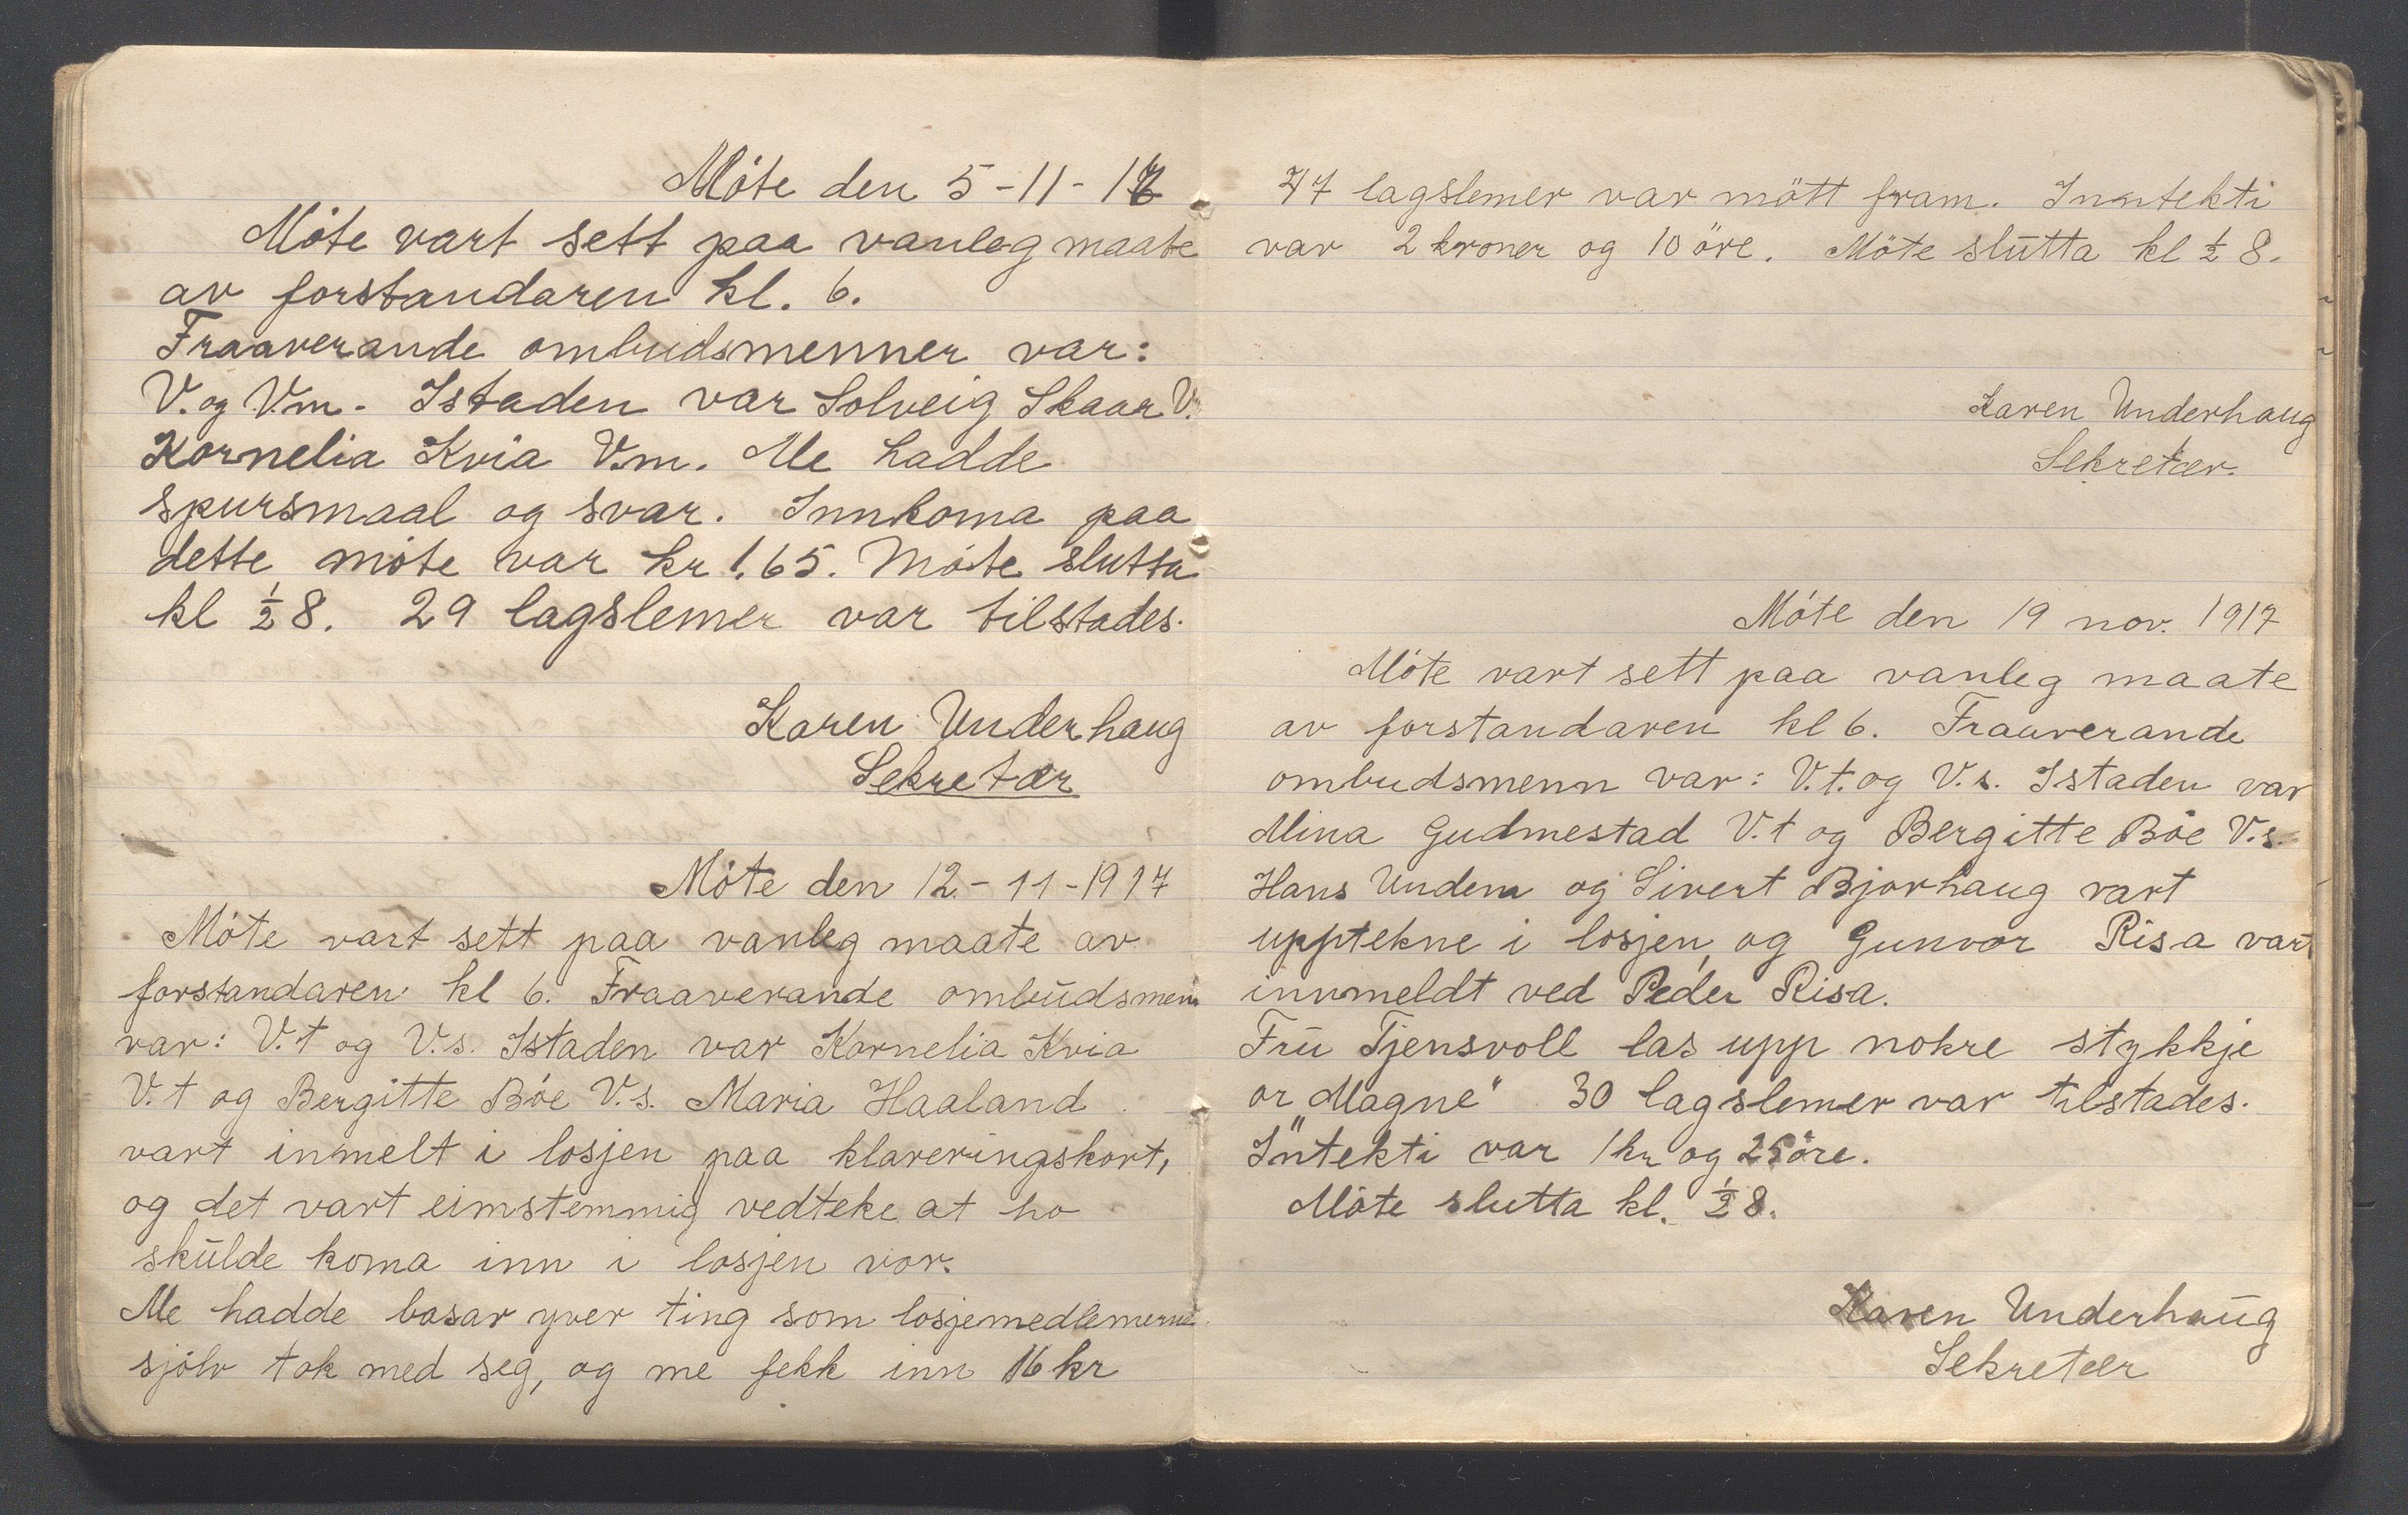 Möte den 5-11-17
Möte vart sett paa vanleg maate
av forstandaren kl. 6.
Fraaverande ombudsmenner var:
V. og V.m. Istaden var Solveig Skaar V.
Kornelia Kvia V.m. Me hadde
spursmaal og svar. Innkoma paa
dette möte var kr 1.65. Möte slutta
kl ½ 8. 29 lagslemer var tilstades.
Karen Underhaug
Sekretær
Möte den 12-11-1917
Möte vart sett paa vanleg maate av
forstandaren kl 6. Fraaverande ombudsmenn
var: V.t og V.s. Istaden var Kornelia Kvia
V.t og Bergitte Böe V.s. Maria Haaland
vart inmelt i losjen paa klareringskort,
og det vart eimstemmig vedteke at ho
skulde koma inn i losjen vor.
Me hadde basar yver ting som losjemedlemerne
sjölv tok med seg, og me fekk inn 16 kr
47 lagslemer var mött fram. Inntekti
var 2 kroner og 10 öre. Möte slutta kl ½ 8.
Karen Underhaug
Sekretær.
Möte den 19 nov. 1917
Möte vart sett paa vanleg maate
av forstandaren kl 6. Fraaverande
ombudsmenn var: V.t. og V.s. Istaden var
Mina Gudmestad V.t og Bergitte Böe V.s.
Hans Undem og Sivert Bjorhaug vart
upptekne i losjen, og Gunvor Risa vart
innmeldt ved Peder Risa.
Fru Tjensvoll las upp nokre stykkje
or „Magne" 30 lagslemer var tilstades.
Intekti var 1 kr og 25 öre.
Möte slutta kl. ½ 8.
Karen Underhaug
Sekretær